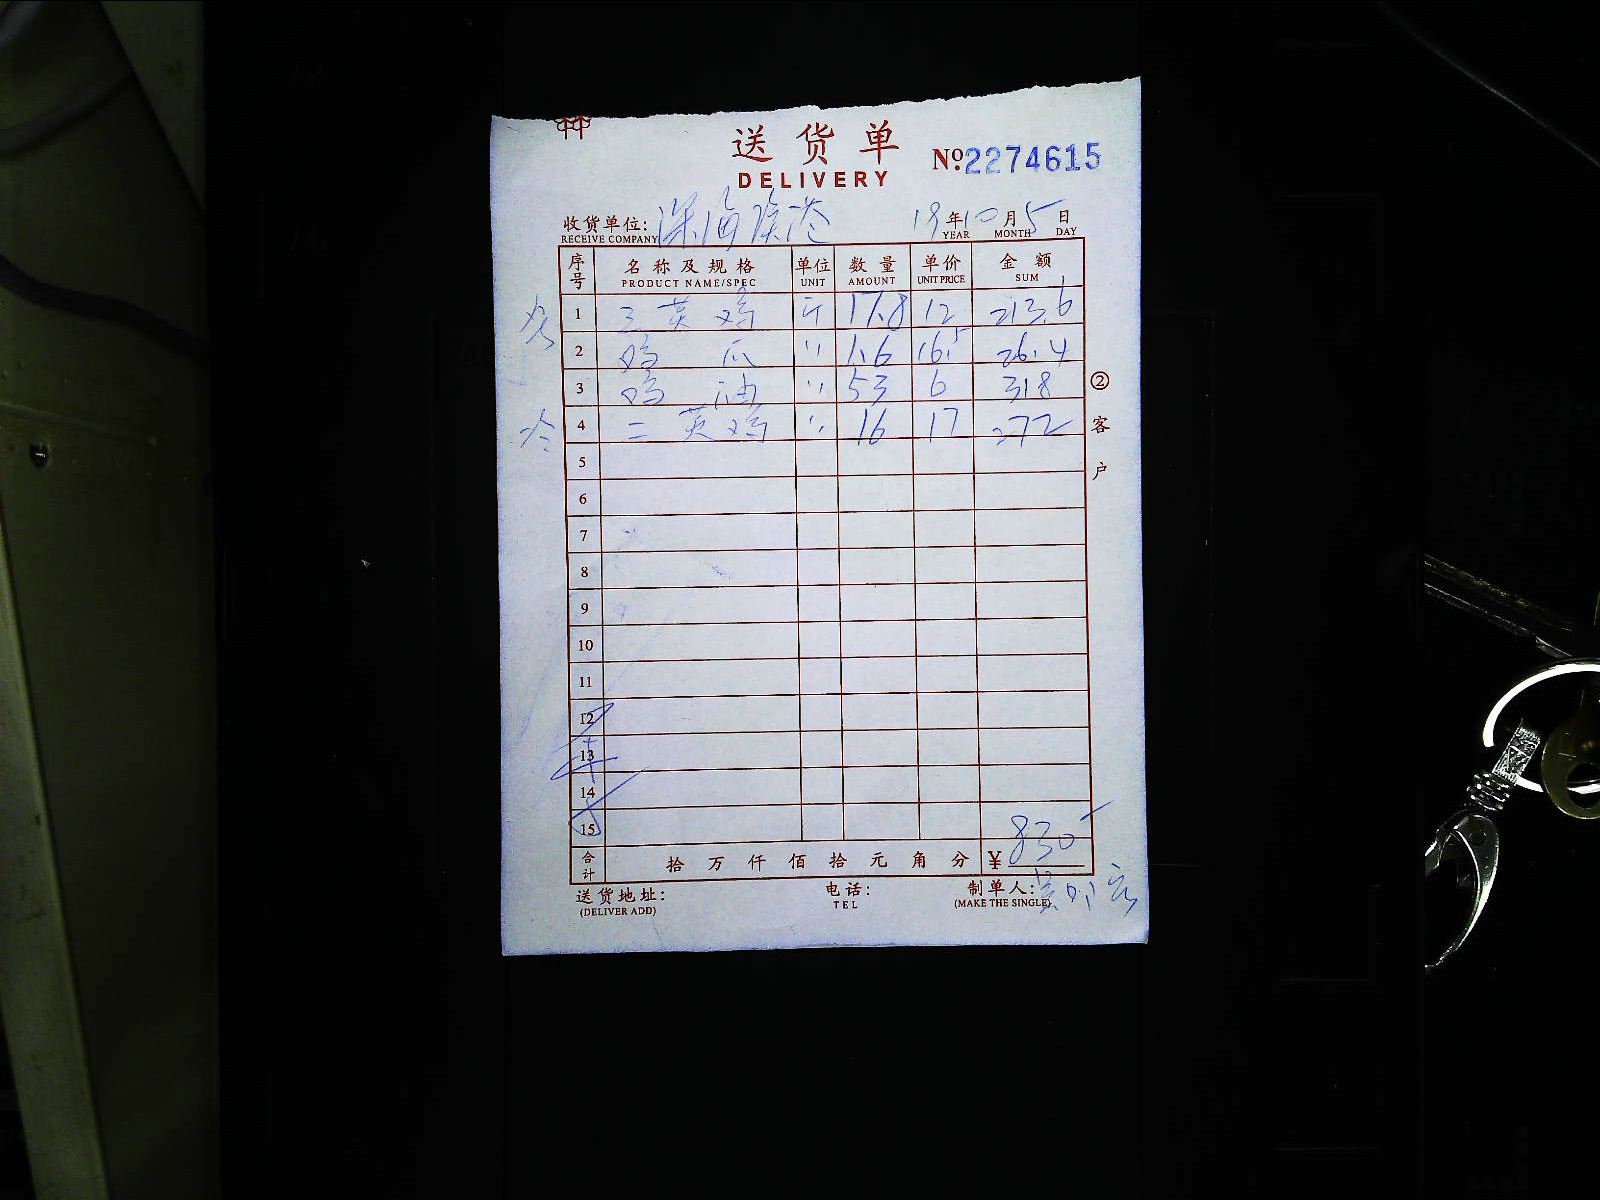 送货单
DELIVERY
№2274615
收货单位: 深海渔港 19年10月5日
RECEIVE COMPANY YEAR MONTH DAY
序号 名称及规格 单位 数量 单价 金额
PRODUCT NAME/SPEC UNIT AMOUNT UNIT PRICE SUM
1 三黄鸡 斤 17.8 12 213.6
2 鸡爪 〃 1.6 16.5 26.4
3 鸡油 〃 53 6 318
4 二黄鸡 〃 16 17 272
5
6
7
8
9
10
11
12
13
14
15
合计 拾万仟佰拾元角分 ¥830
②客户
送货地址: 电话: 制单人:
(DELIVER ADD) TEL (MAKE THE SINGLE)